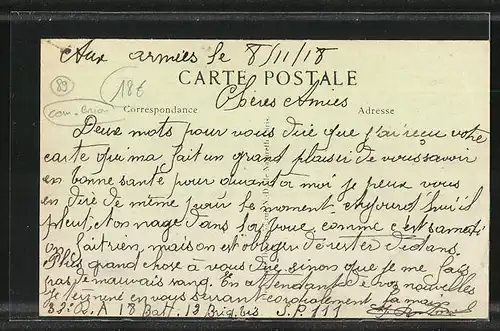 Aux armées le 8/11/18
89
18€
CARTE POSTALE
com. Brion
Correspondance
Adresse
Chères Amies
Deux mots pour vous dire que j'ai reçu votre
carte qui ma fait un grand plaisir de vous savoir
en bonne santé pour quand a moi je peux vous
en dire de même pour le moment. aujourd'hui il
pleut, et on nage dans la boue comme c'est samedi
on fait rien, mais on est obliger de rester dedans.
Plus grand chose à vous dire, sinon que je me fais
pas de mauvais sang. En attendant de vos nouvelles
je termine en vous serrant cordialement la main
32e R.A 18 Batt. 12 Brig. bis S.P. 111